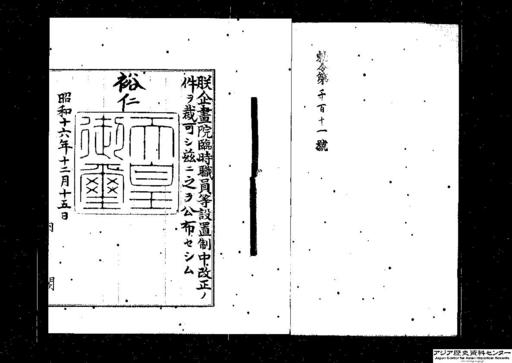 勅令第千百十一號
朕企畫院臨時職員等設置制中改正ノ
件ヲ裁可シ茲ニ之ヲ公布セシム
裕仁
天皇御璽
昭和十六年十二月十五日
内閣
アジア歴史資料センター
Japan Center for Asian Historical Records